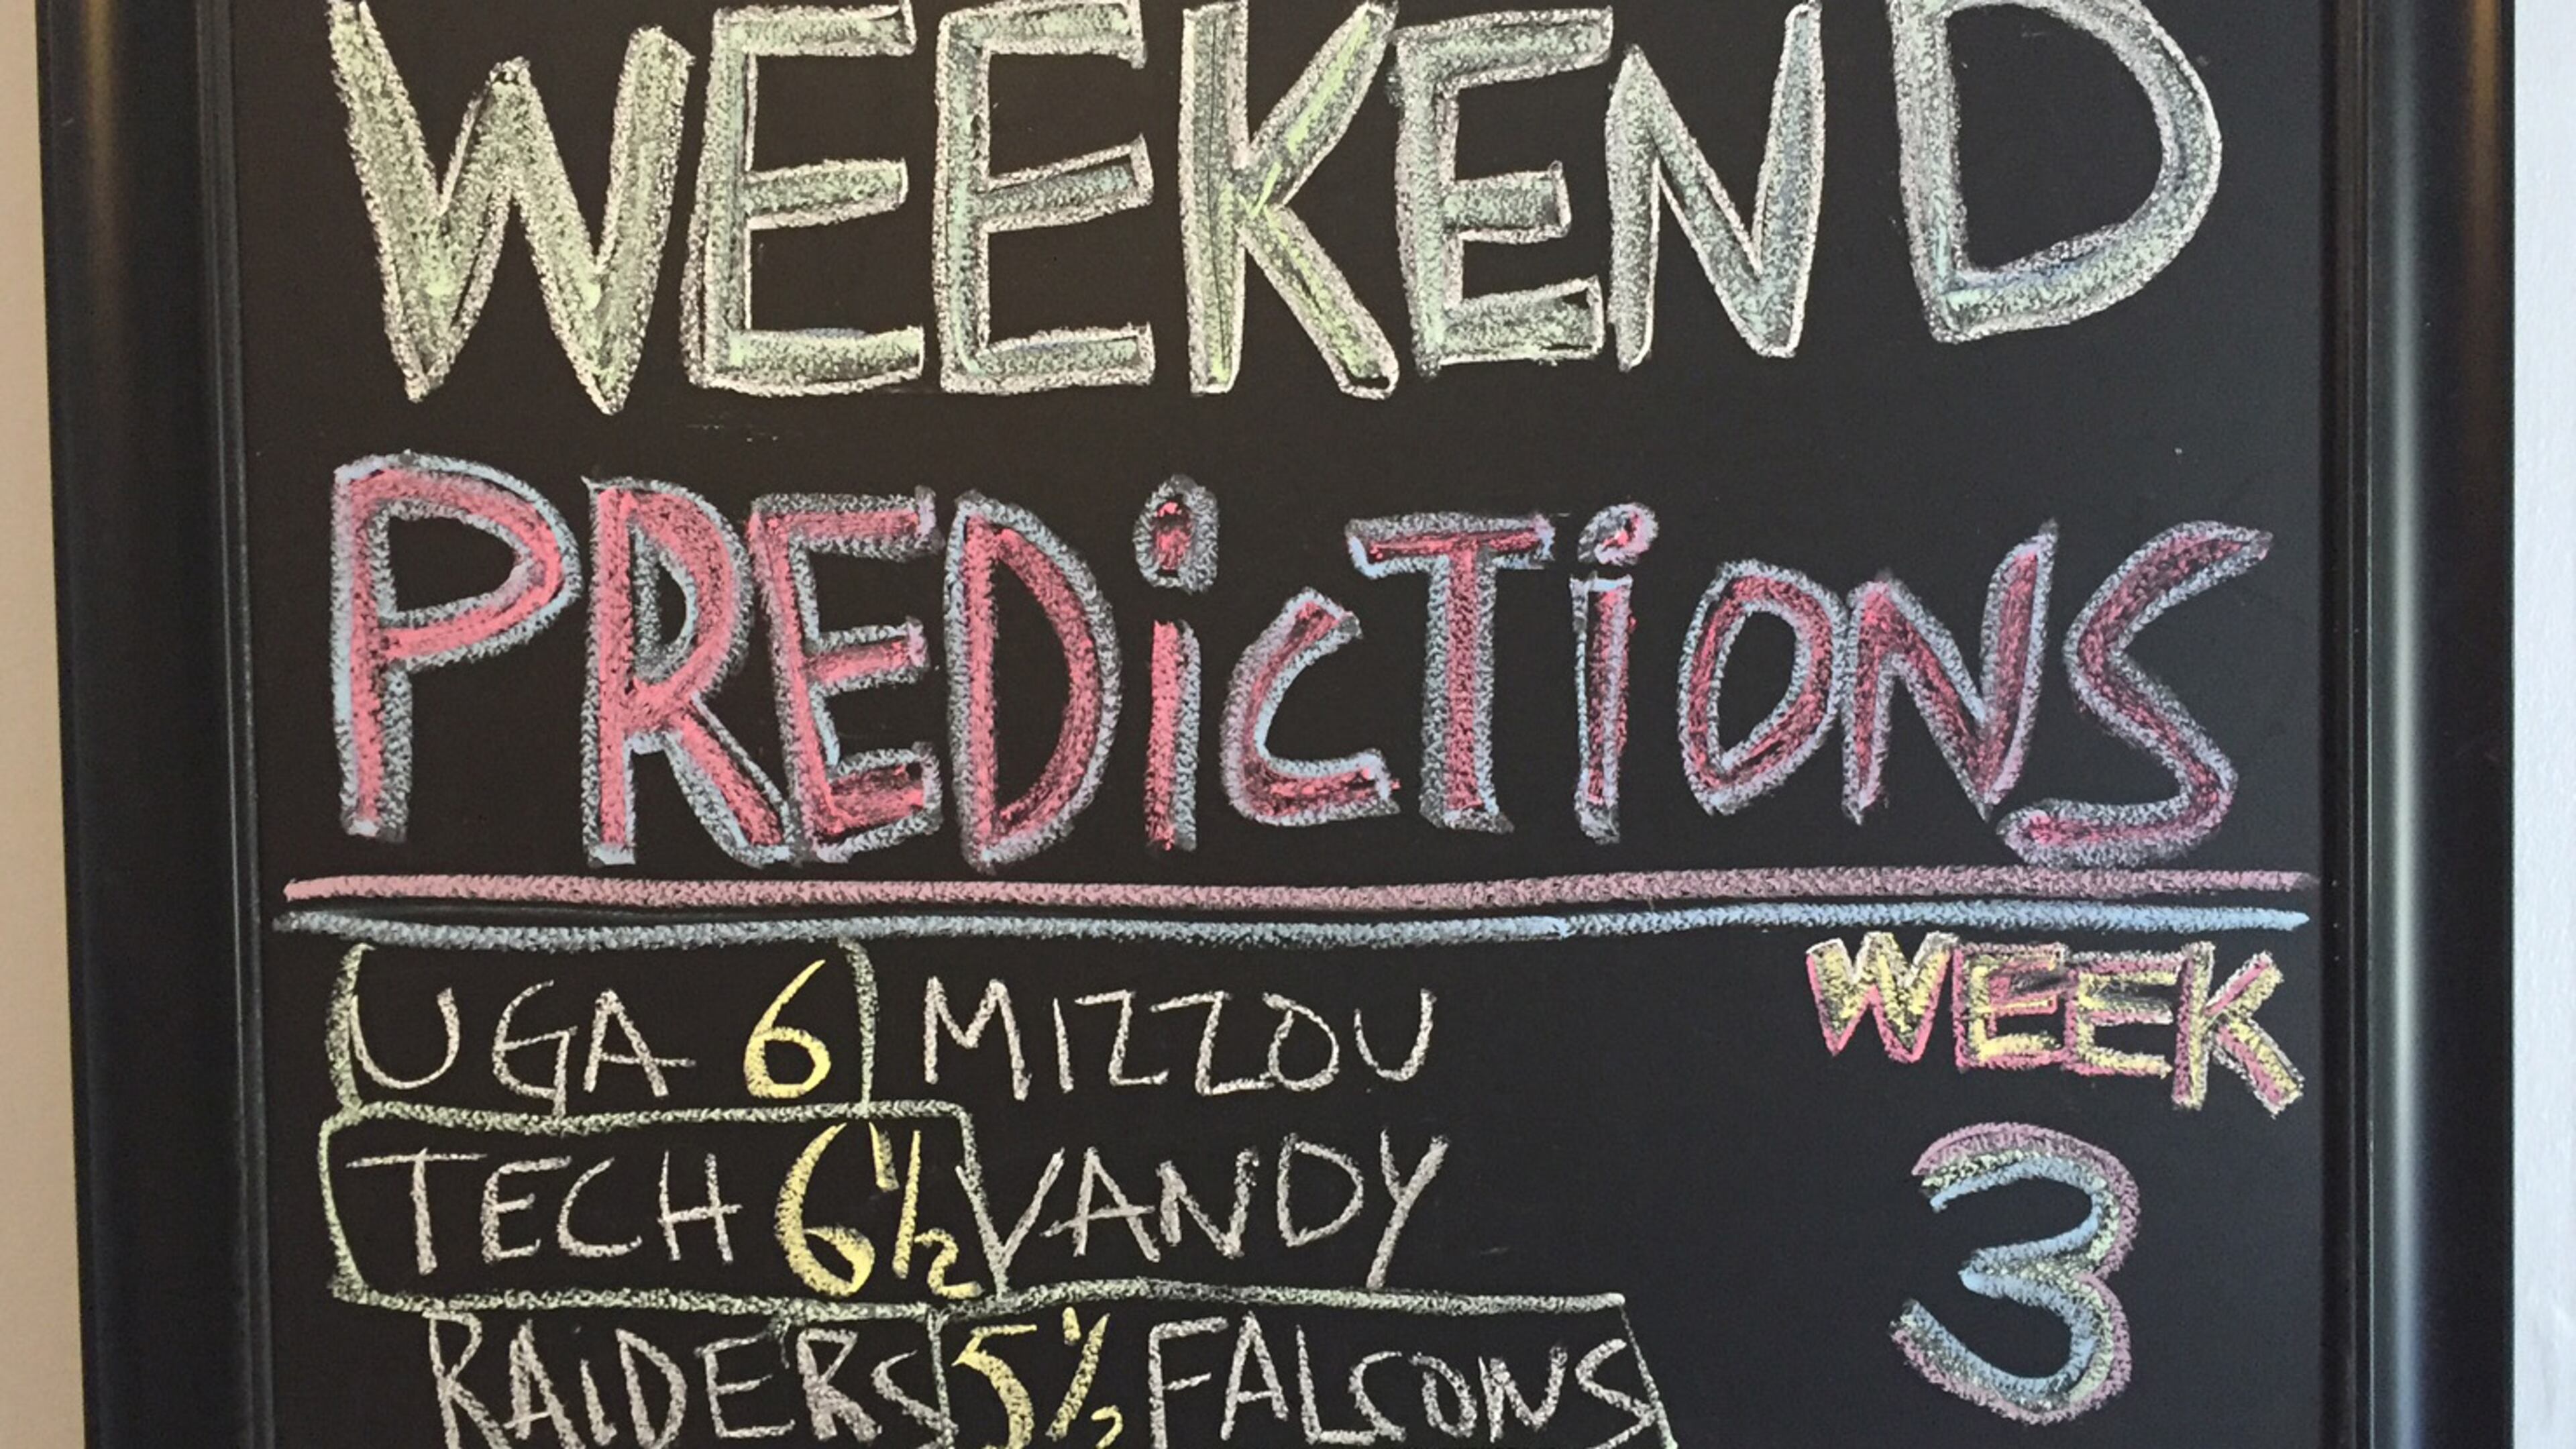 WEEKEND
PREDiCTiONS
WEEK
3
UGA 6 MIZZOU
TECH 6½ VANDY
RAIDERS 5½ FALCONS